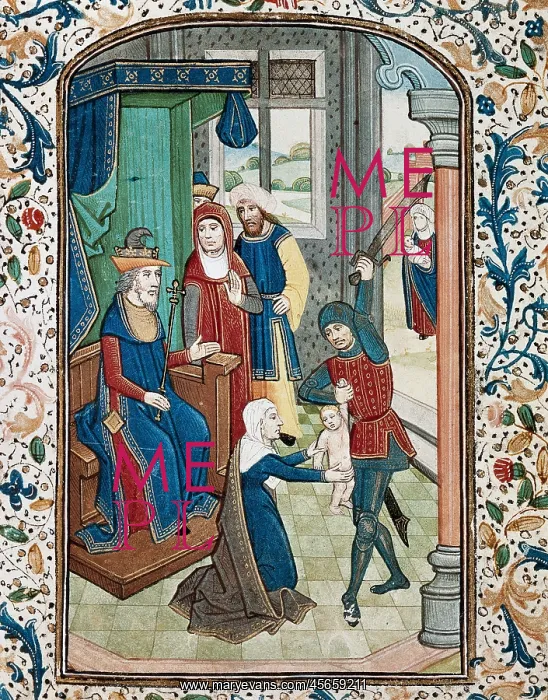 ME
PL
ME
PL
www.maryevans.com/45659211